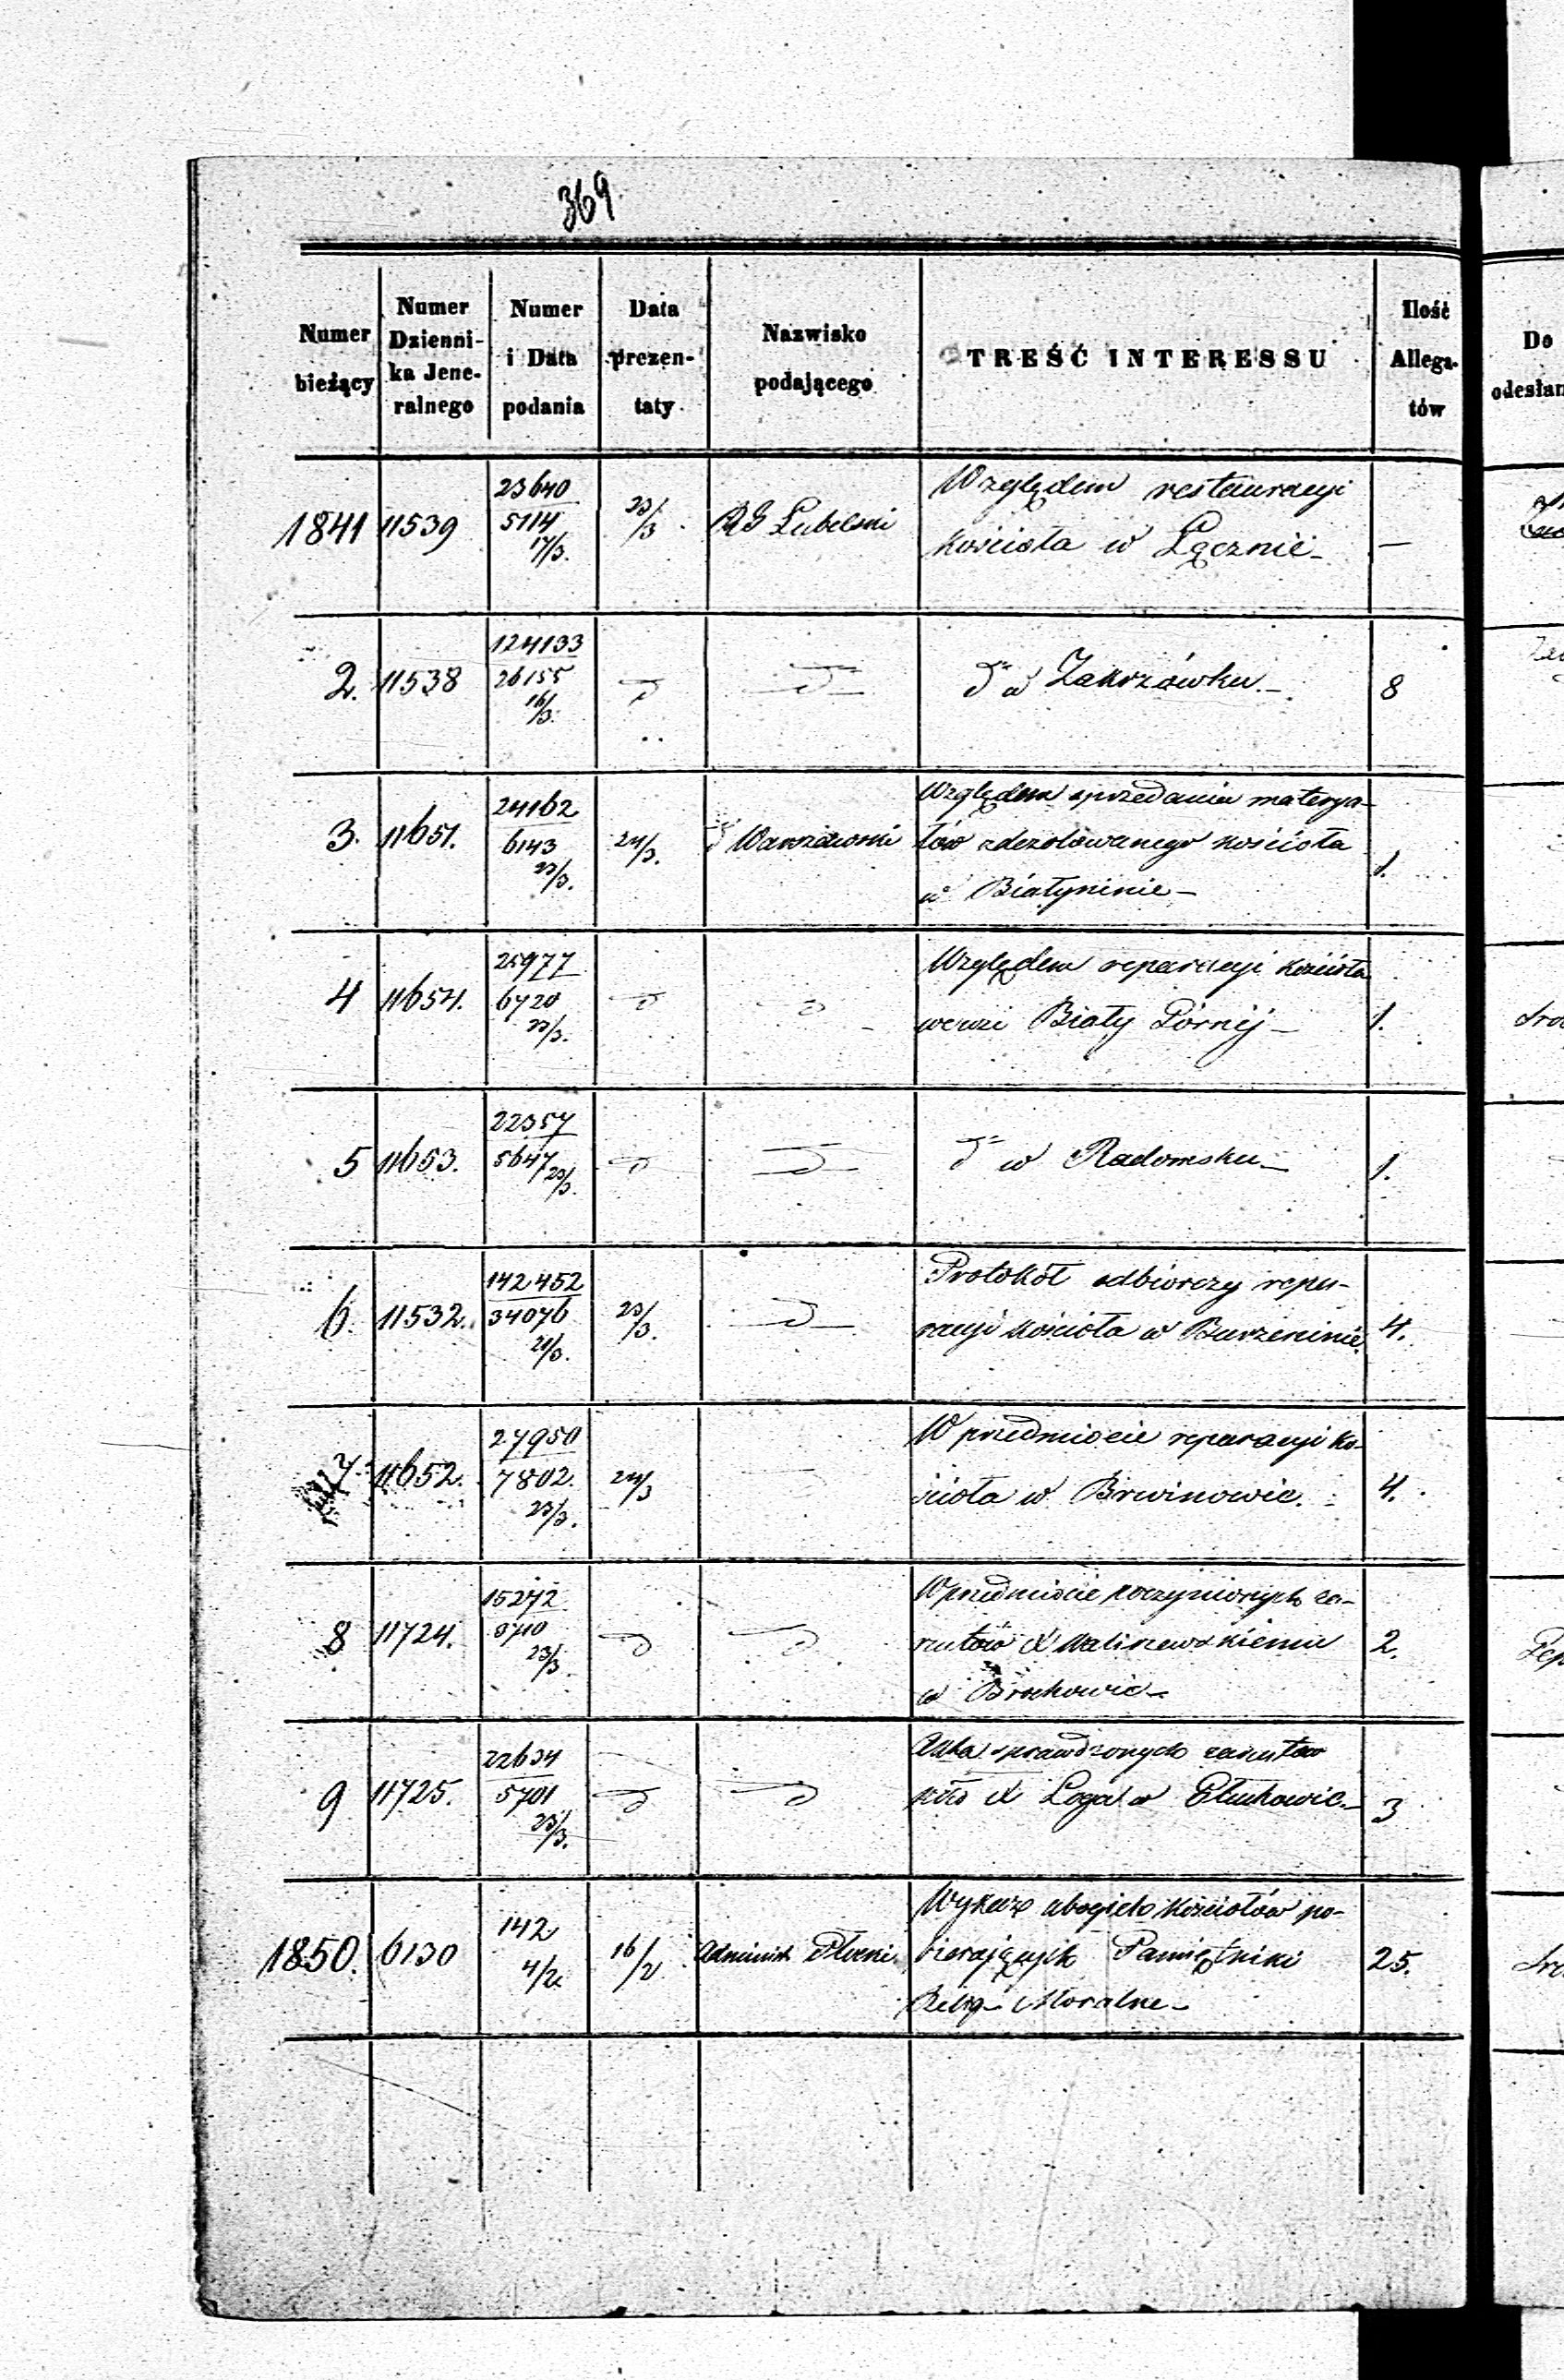 369
Numer bieżący
Numer Dzienni-ka Jene-ralnego
Numer i Data podania
Data prezen-taty
Nazwisko podającego
TREŚĆ INTERESSU
Ilość Allega-tów
Do odesłan
1841 11539 23640 5114 17/3. 23/3. RG Lubelski
Względem restauracyi
kościoła w Łącznie —
2. 11538 124133 26155 16/3. d
d° w Zakrzówku. — 8
3. 11651. 24162 6143 23/3. 24/3. d° Warszawski
Względem sprzedania materya-
łów zdezolowanego kościoła
w Białyninie — 1.
4 11654. 25977 6720 23/3. d d
Względem reparacyi kościoła
we wsi Biały Górnéj — 1.
5 11653. 22357 5647 23/3. d d
d° w Radomsku — 1.
6. 11532. 142452 34076 21/3. 23/3. d
Protokół odbiorczy repa-
racyi kościoła w Burzeninie 4.
7. 11652. 27950 7802. 23/3. 24/3
W przedmiocie reparacyi ko-
ścioła w Brwinowie. 4.
8 11724. 15272 23/3 d d
W przedmiocie poczynionych za-
rzutów X Kaliszewskiemu 2.
w Brochowie —
9 11725. 22634 5701 23/3. d d
sprawdzonych zarzutów
X Loga w Głuchowie. — 3
1850. 6130 142 4/2. 16/2. Administr
Wykaz ubogich kościołów po-
bierających Pamiętniki 25.
Relig. Moralne —